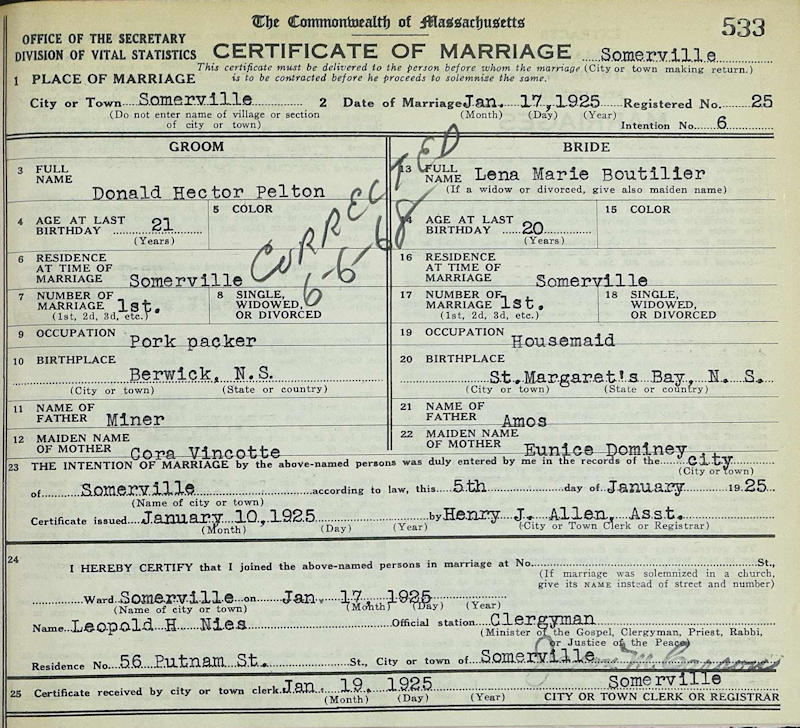 The Commonwealth of Massachusetts
533
OFFICE OF THE SECRETARY
DIVISION OF VITAL STATISTICS
CERTIFICATE OF MARRIAGE
Somerville
This certificate must be delivered to the person before whom the marriage (City or town making return.)
is to be contracted before he proceeds to solemnize the same.
1 PLACE OF MARRIAGE
City or Town Somerville 2 Date of Marriage Jan. 17, 1925 Registered No. 25
(Do not enter name of village or section of city or town) (Month) (Day) (Year)
Intention No. 6
GROOM BRIDE
CORRECTED
6-6-68
3 FULL NAME Donald Hector Pelton
13 FULL NAME Lena Marie Boutilier
(If a widow or divorced, give also maiden name)
4 AGE AT LAST BIRTHDAY 21 (Years) 5 COLOR
14 AGE AT LAST BIRTHDAY 20 (Years) 15 COLOR
6 RESIDENCE AT TIME OF MARRIAGE Somerville
16 RESIDENCE AT TIME OF MARRIAGE Somerville
7 NUMBER OF MARRIAGE 1st. (1st, 2d, 3d, etc.) 8 SINGLE, WIDOWED, OR DIVORCED
17 NUMBER OF MARRIAGE 1st. (1st, 2d, 3d, etc.) 18 SINGLE, WIDOWED, OR DIVORCED
9 OCCUPATION Pork packer
19 OCCUPATION Housemaid
10 BIRTHPLACE Berwick, N.S.
(City or town) (State or country)
20 BIRTHPLACE St.Margaret's Bay, N. S.
(City or town) (State or country)
11 NAME OF FATHER Miner
21 NAME OF FATHER Amos
12 MAIDEN NAME OF MOTHER Cora Vincotte
22 MAIDEN NAME OF MOTHER Eunice Dominey
23 THE INTENTION OF MARRIAGE by the above-named persons was duly entered by me in the records of the city
(City or town)
of Somerville according to law, this 5th day of January 1925
(Name of city or town)
Certificate issued January 10, 1925 by Henry J. Allen, Asst.
(Month) (Day) (Year) (City or Town Clerk or Registrar)
24 I HEREBY CERTIFY that I joined the above-named persons in marriage at No. St.,
(If marriage was solemnized in a church,
give its NAME instead of street and number)
Ward Somerville on Jan. 17 1925
(Name of city or town) (Month) (Day) (Year)
Name Leopold H Nies Official station Clergyman
(Minister of the Gospel, Clergyman, Priest, Rabbi,
or Justice of the Peace)
Residence No. 56 Putnam St. St., City or town of Somerville
25 Certificate received by city or town clerk Jan 19, 1925 Somerville
(Month) (Day) (Year) CITY OR TOWN CLERK OR REGISTRAR